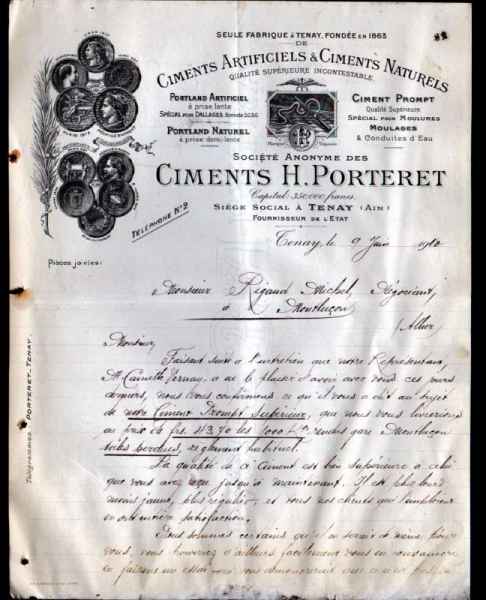 SEULE FABRIQUE à TENAY, FONDÉE EN 1863
DE
CIMENTS ARTIFICIELS & CIMENTS NATURELS
QUALITÉ SUPÉRIEURE INCONTESTABLE
PORTLAND ARTIFICIEL
à prise lente
SPÉCIAL POUR DALLAGES
PORTLAND NATUREL
à prise demi-lente
CIMENT PROMPT
Qualité Supérieure
SPÉCIAL POUR MOULURES
MOULAGES
& Conduites d'Eau
SOCIÉTÉ ANONYME DES
CIMENTS H. PORTERET
Capital: 350.000 francs
SIÈGE SOCIAL À TENAY (AIN)
FOURNISSEUR DE L'ETAT
TÉLÉPHONE Nº 2
Tenay, le 9 Juin
Pièces jointes:
Monsieur Rigaud Michel, Négociant,
à Montluçon
(Allier)
TÉLÉGRAMMES: PORTERET-TENAY
Monsieur,
Faisant suite à l'entretien que notre Représentant,
M. Camille Vernay, a eu le plaisir d'avoir avec vous ces jours
derniers, nous vous confirmons ce qu'il vous a dit au sujet
de notre Ciment Prompt Supérieur, que nous vous livrerions
au prix de frs les 1000 Kos rendus gare Montluçon
toiles perdues, escompte habituel.
La qualité de ce Ciment est bien supérieure à celui
que vous avez reçu jusqu'à maintenant. Il est plus lourd
moins jaune, plus régulier, et tous nos clients qui l'emploient
en ont entière satisfaction.
Nous sommes certains qu'il en serait de même
vous, vous pourrez d'ailleurs facilement vous en convaincre
en faisant un essai